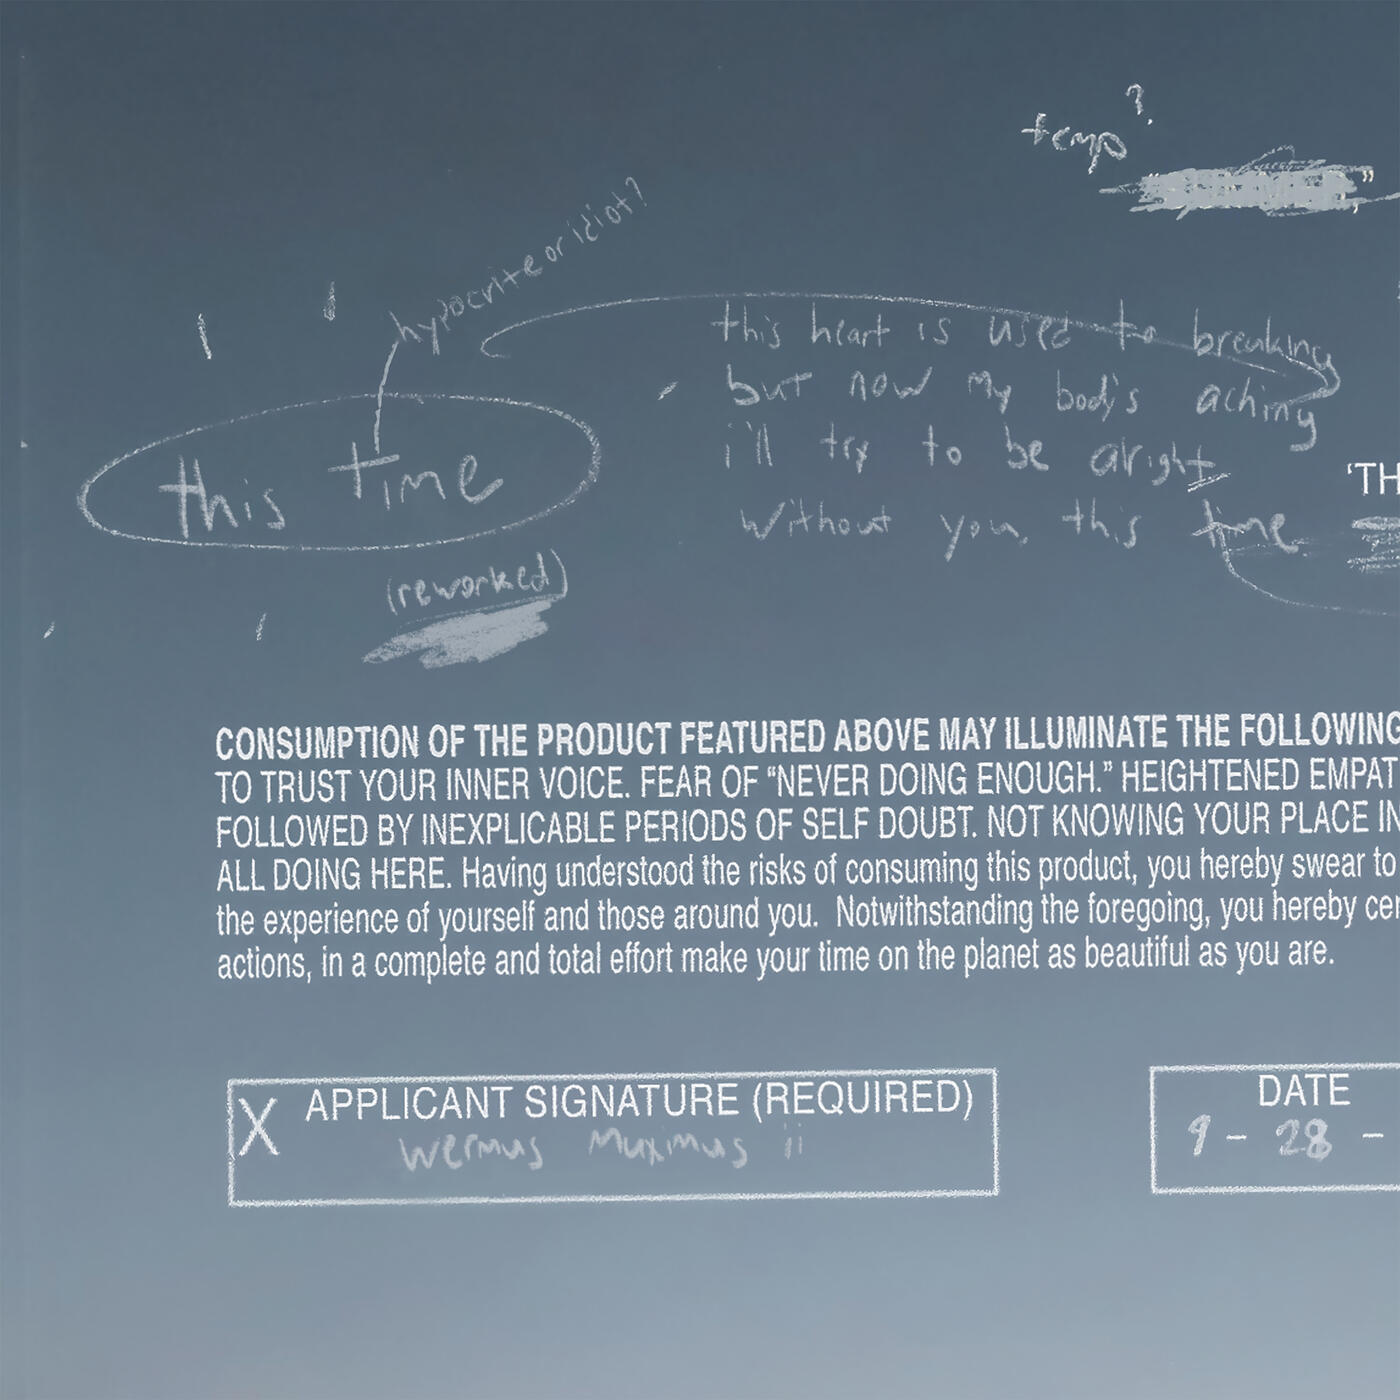 temp?
hypocrite or idiot?
this heart is used to breaking
but now my body's aching
i'll try to be alright
without you, this time
this time
'TH
(reworked)
CONSUMPTION OF THE PRODUCT FEATURED ABOVE MAY ILLUMINATE THE FOLLOWING
TO TRUST YOUR INNER VOICE. FEAR OF “NEVER DOING ENOUGH.” HEIGHTENED EMPAT
FOLLOWED BY INEXPLICABLE PERIODS OF SELF DOUBT. NOT KNOWING YOUR PLACE IN
ALL DOING HERE. Having understood the risks of consuming this product, you hereby swear to
the experience of yourself and those around you. Notwithstanding the foregoing, you hereby cer
actions, in a complete and total effort make your time on the planet as beautiful as you are.
X APPLICANT SIGNATURE (REQUIRED)
Wermus Muximus ii
DATE
9 - 28 -